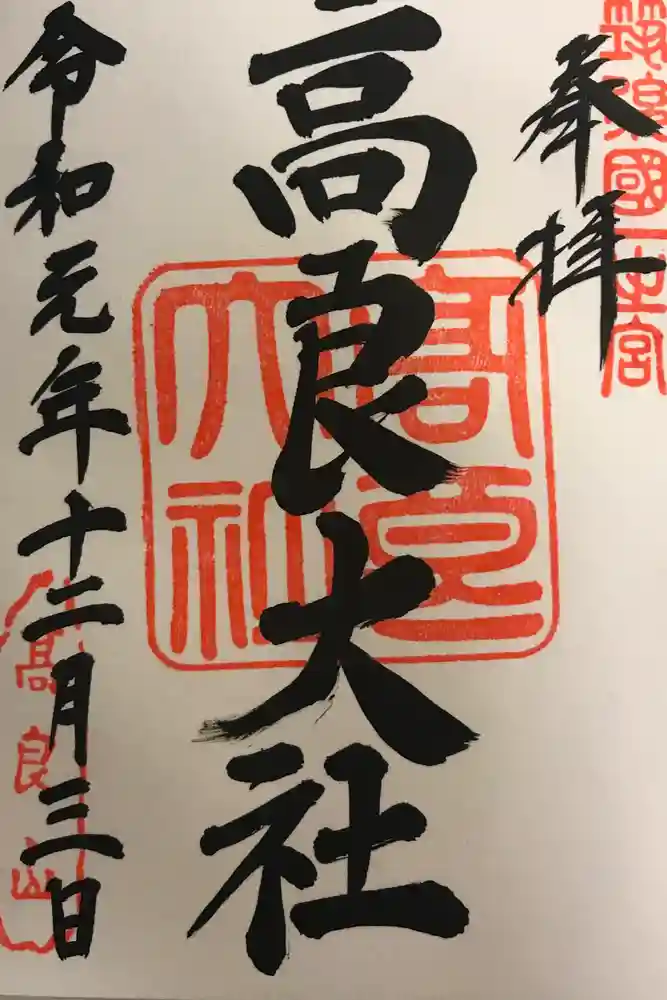 筑後國一之宮
奉拝
高良大社
高良大社
令和元年十二月三日
高良山